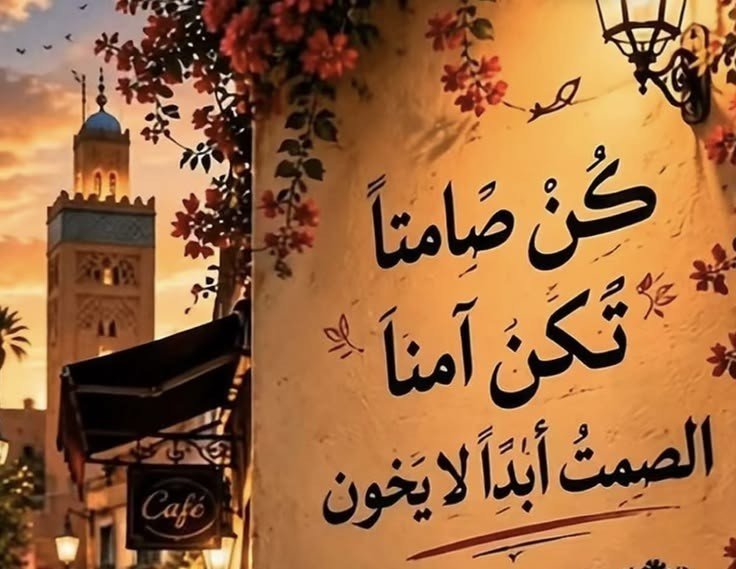 كُنْ صَامِتاً
تُكَنُ آمناَ
الصِمتُ أبَدًاً لا يَخون
Café